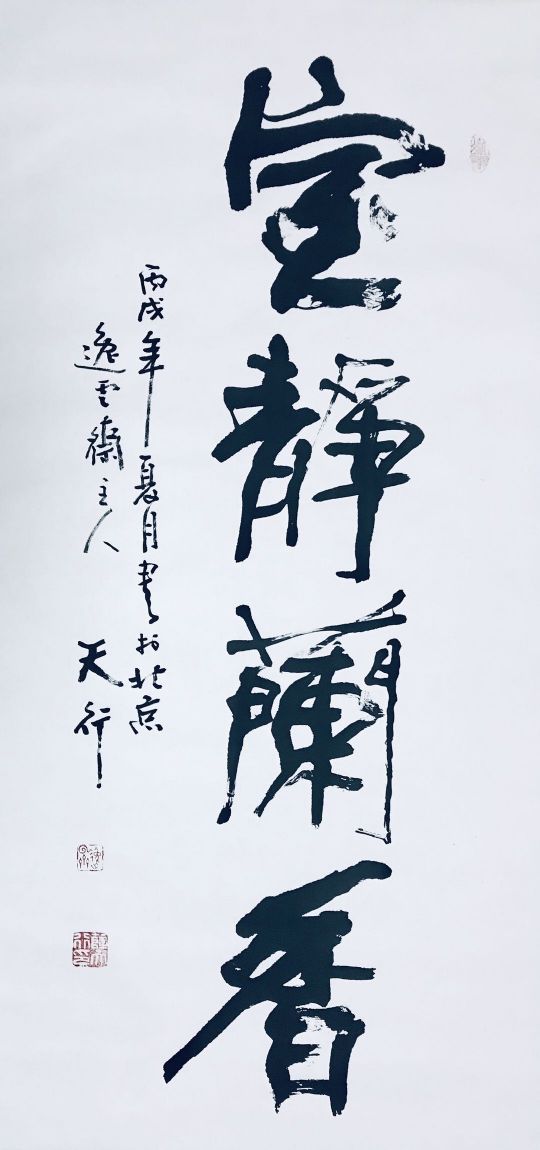 室靜蘭香
丙戌年夏月書於北京
逸雲齋主人
天行